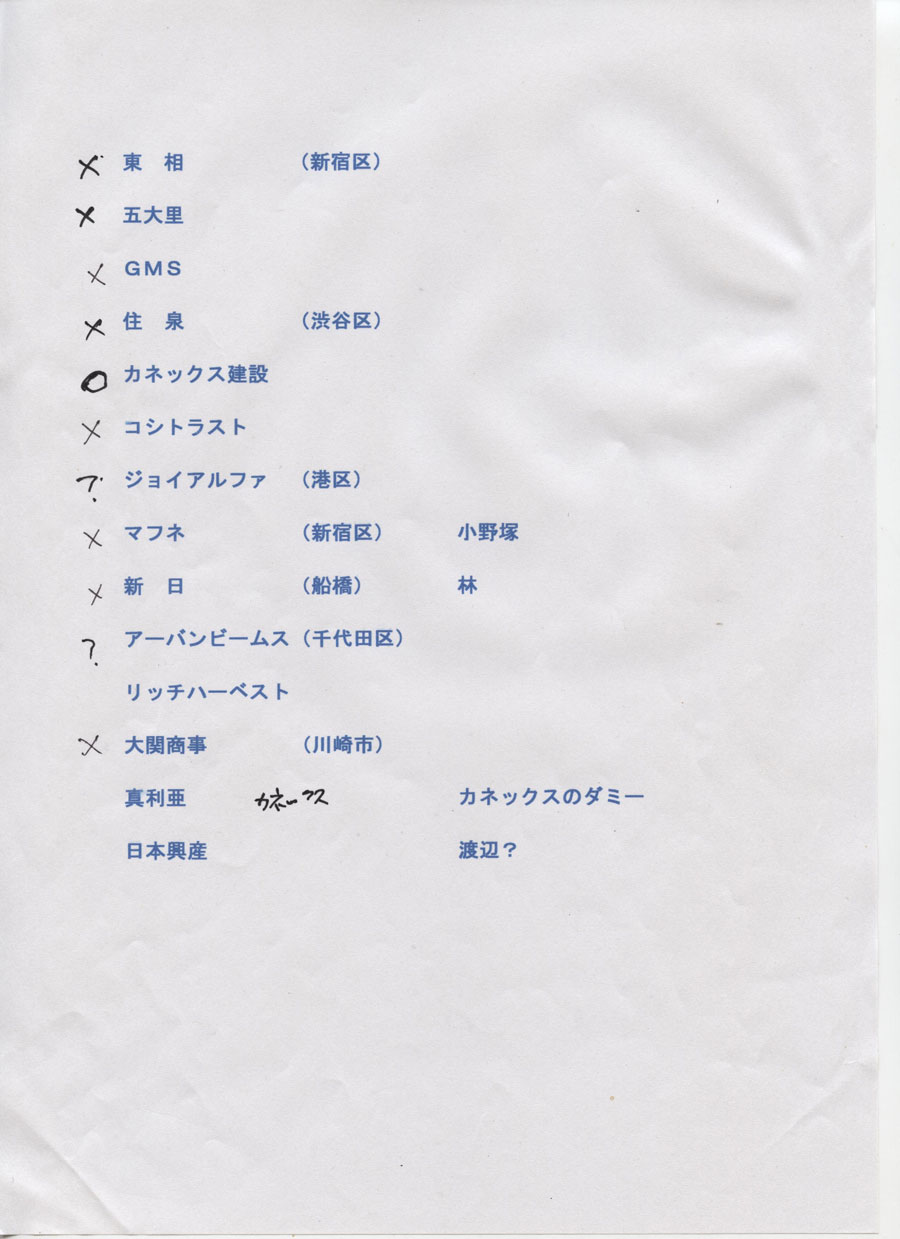 × 東　相　（新宿区）
× 五大里
× ＧＭＳ
× 住　泉　（渋谷区）
○ カネックス建設
× コシトラスト
? ジョイアルファ　（港区）
× マフネ　（新宿区）　小野塚
× 新　日　（船橋）　林
? アーバンビームス（千代田区）
リッチハーベスト
× 大関商事　（川崎市）
真利亜　カネックス　カネックスのダミー
日本興産　渡辺？